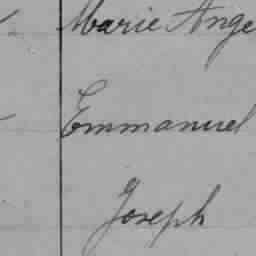 Marie Ange
Emmanuel
Joseph